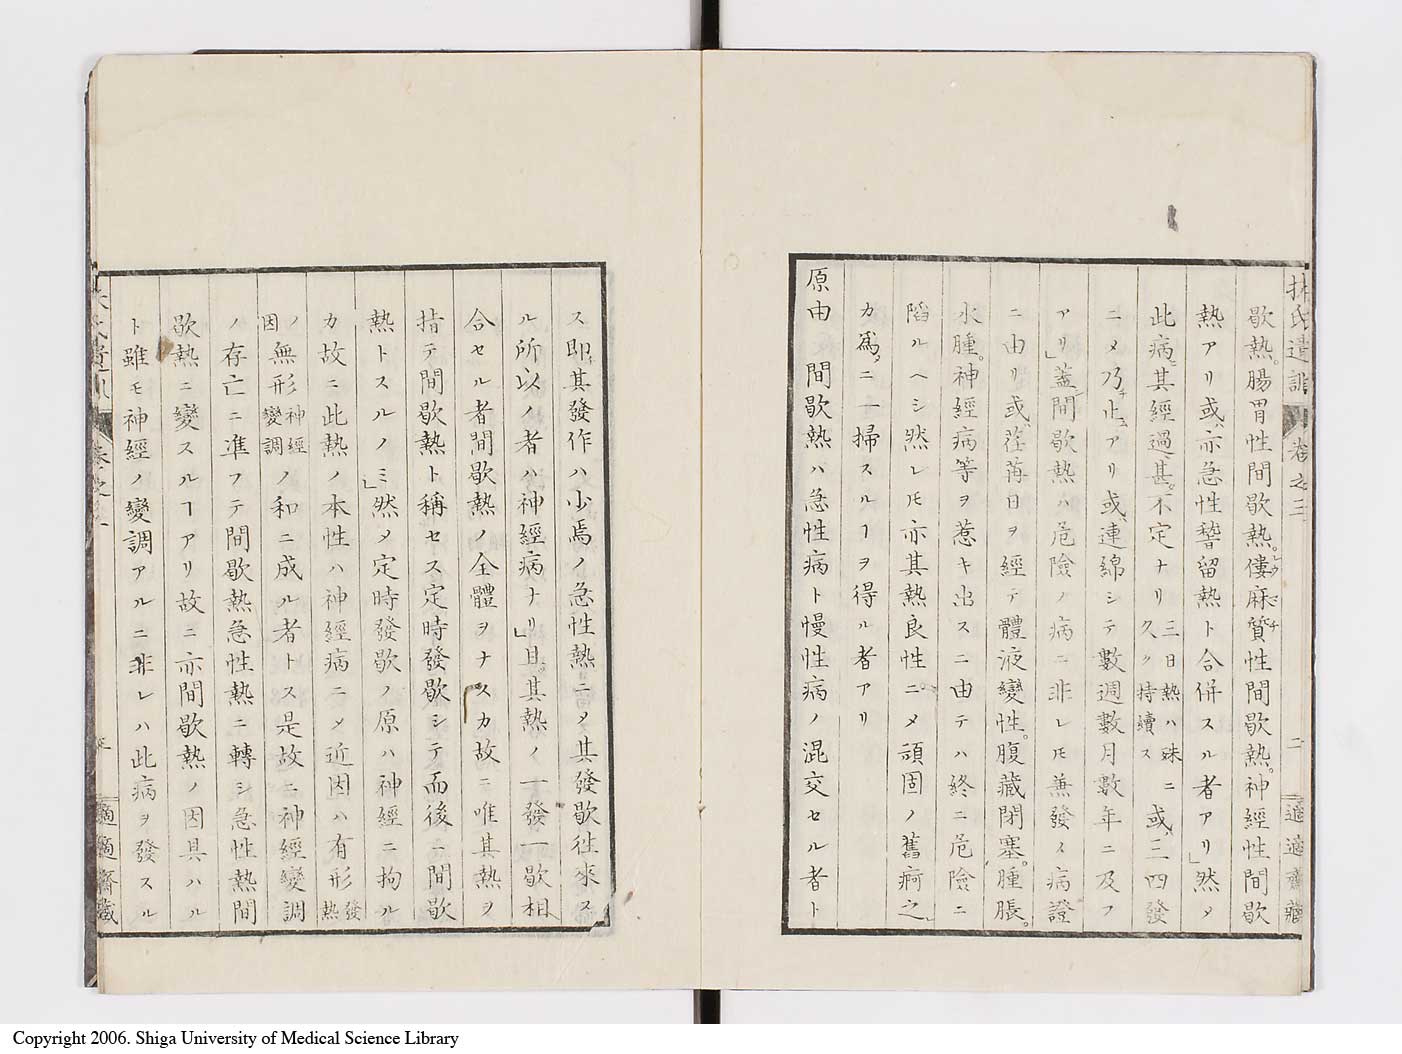 扶氏遺訓 卷之三 二 適適齋藏
歇熱。腸胃性間歇熱。僂麻質性間歇熱。神經性間歇
熱アリ或亦急性稽留熱ト合併スル者アリ」然〆
此病其經過甚不定ナリ三日熱ハ殊ニ久ク持續ス或三四發
ニ〆乃止ムアリ或連綿シテ數週數月數年ニ及フ
アリ」蓋間歇熱ハ危險ノ病ニ非レ𪜈兼發ノ病證
ニ由リ或荏苒日ヲ經テ體液變性。腹藏閉塞。腫脹。
水腫。神經病等ヲ惹キ出スニ由テハ終ニ危險ニ
陷ルヘシ然レ𪜈亦其熱良性ニ〆頑固ノ舊痾之
カ爲ニ一掃スルヿヲ得ル者アリ
原由 間歇熱ハ急性病ト慢性病ノ混交セル者ト
ス即其發作ハ少焉ノ急性熱ニ〆其發歇往來ス
ル所以ノ者ハ神經病ナリ」且其熱ノ一發一歇相
合セル者間歇熱ノ全體ヲナスカ故ニ唯其熱ヲ
指テ間歇熱ト稱セス定時發歇シテ而後ニ間歇
熱トスルノミ」然〆定時發歇ノ原ハ神經ニ拘ル
カ故ニ此熱ノ本性ハ神經病ニ〆近因ハ有形發熱
ノ因無形神經變調ノ和ニ成ル者トス是故ニ神經變調
ノ存亡ニ準フテ間歇熱急性熱ニ轉シ急性熱間
歇熱ニ變スルヿアリ故ニ亦間歇熱ノ因具ハル
ト雖モ神經ノ變調アルニ非レハ此病ヲ發スル
適適齋藏
Copyright 2006. Shiga University of Medical Science Library